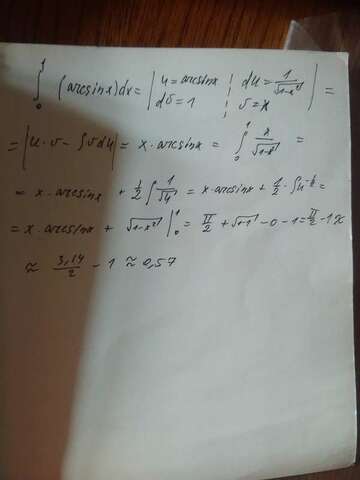 ∫₀¹ (arcsinx)dx = | u = arcsinx ¦ du = 1/√(1-x²) | =
dv = 1 ¦ v = x
= |u·v - ∫vdu| = x·arcsinx = ∫₀¹ x/√(1-x²) =
= x·arcsinx + 1/2 ∫ 1/√u = x·arcsinx + 1/2·∫u^(-1/2) =
= x·arcsinx + √(1-x²) |₀¹ = π/2 + √(1-1) - 0 - 1 = π/2 - 1
≈ 3,14/2 - 1 ≈ 0,57